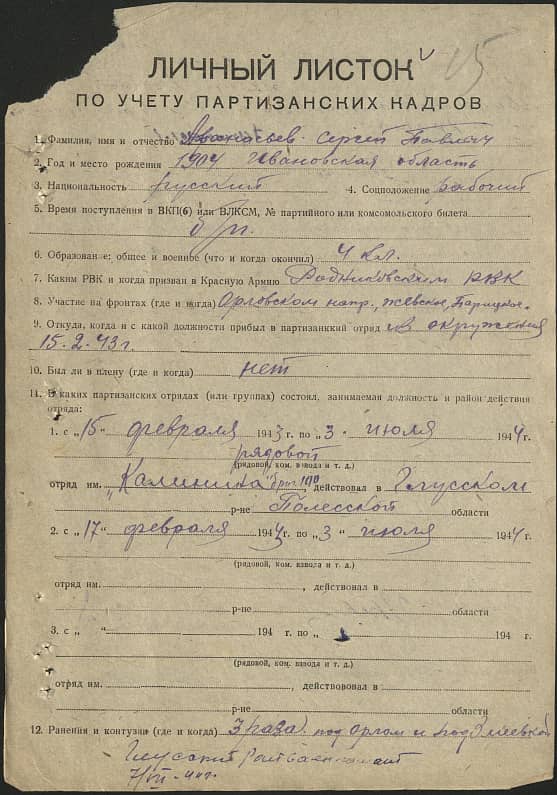 15
ЛИЧНЫЙ ЛИСТОК
ПО УЧЕТУ ПАРТИЗАНСКИХ КАДРОВ
1. Фамилия, имя и отчество Афанасьев Сергей Павлович
2. Год и место рождения 1904 Ивановская область
3. Национальность русский 4. Соцположение рабочий
5. Время поступления в ВКП(б) или ВЛКСМ, № партийного или комсомольского билета
б/п.
6. Образование: общее и военное (что и когда окончил) 4 кл.
7. Каким РВК и когда призван в Красную Армию Родниковским РВК
8. Участие на фронтах (где и когда) Орловском напр.,
9. Откуда, когда и с какой должности прибыл в партизанкий отряд из окружения
15-2-43 г.
10. Был ли в плену (где и когда) нет
11. В каких партизанских отрядах (или группах) состоял, занимаемая должность и район действия
отряда:
1. с „15" февраля 1943 г. по „3" июля 1944 г.
рядовой
(рядовой, ком. взвода и т. д.)
отряд им. „Калинина" , действовал в Глусском
р-не Полесской области
2. с „17" февраля 1943 г. по „3" июля 1944 г.
(рядовой, ком. взвода и т. д.)
отряд им. , действовал в
р-не области
3. с „ " 194 г. по „ 194 г.
(рядовой, ком. взвода и т. д.)
отряд им. , действововал в
р-не области
12. Ранения и контузии (где и когда) 3 раза под Орлом и под
Глусский Райвоенкомат
7/VII-44 г.